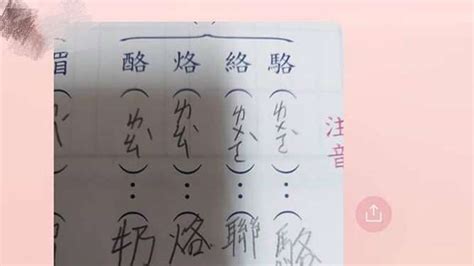 注音
駱（ㄌㄨㄛˋ）：（駱
絡（ㄌㄨㄛˋ）：（聯
烙（ㄌㄠˋ）：（烙
酪（ㄌㄠˋ）：（奶